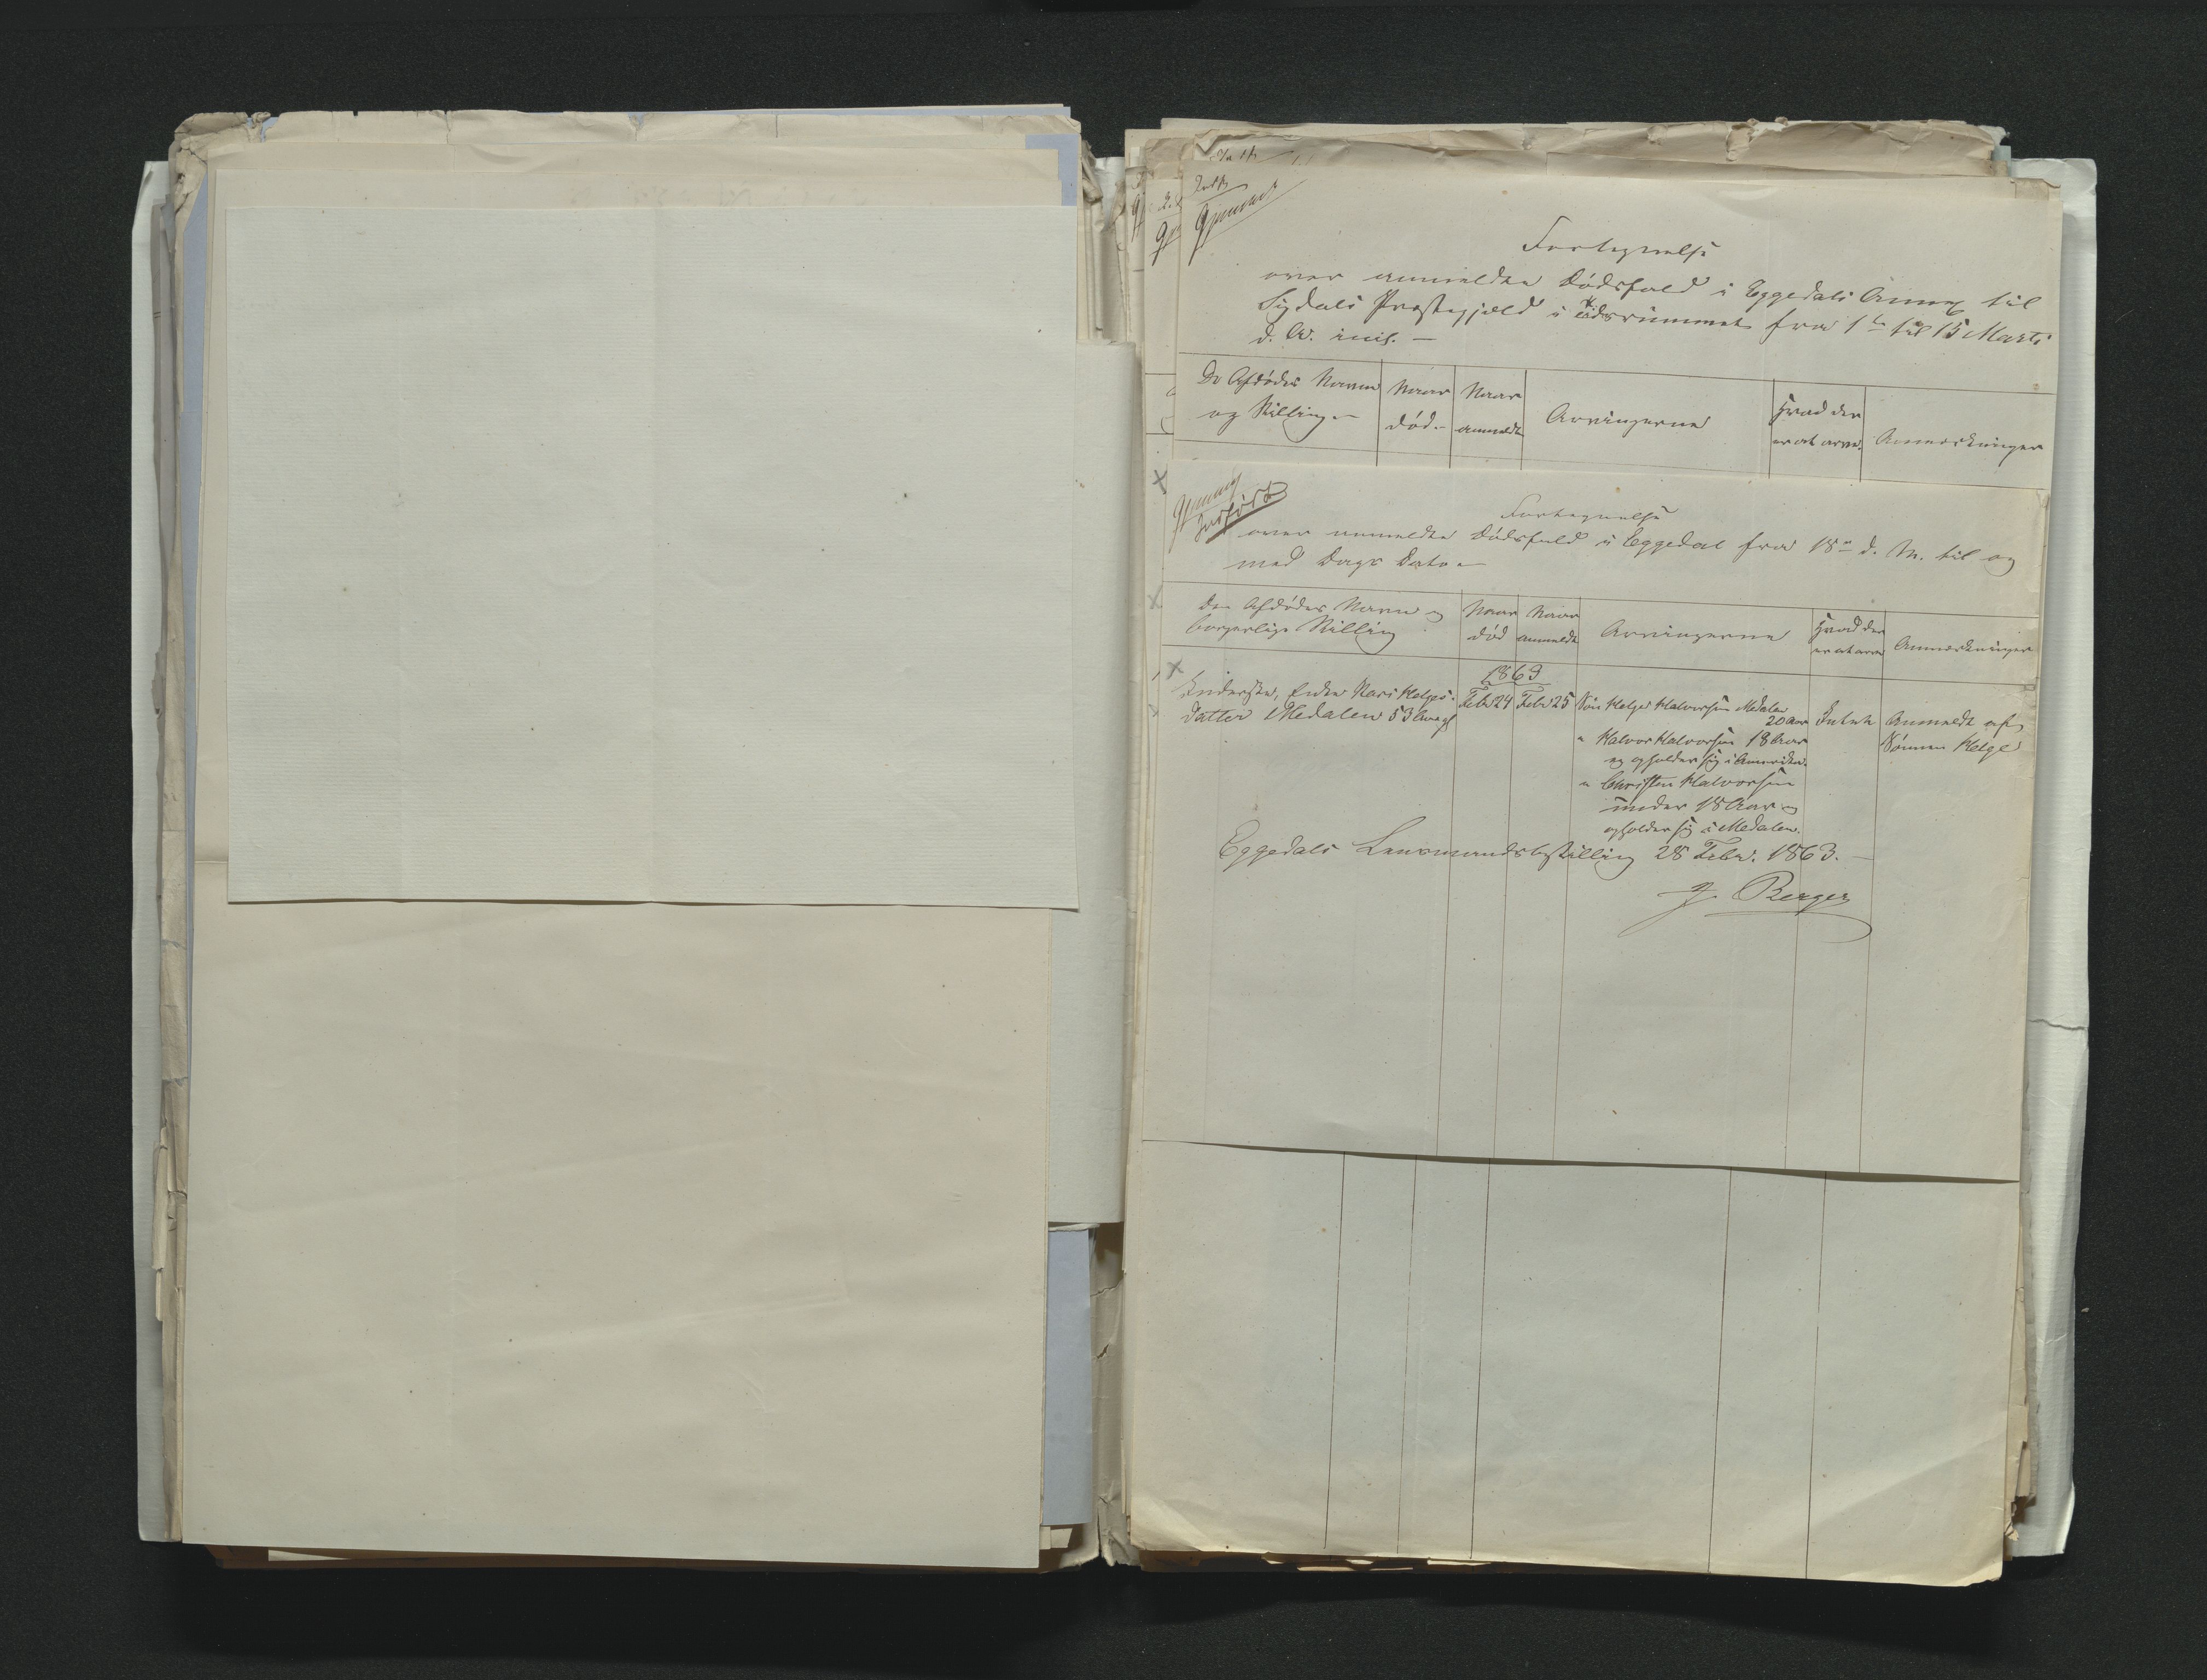 Fortegnelse
over anmeldte Dødsfald i Eggedals Annex til
Sigdals Præstegjæld i Tidsrummet fra 1ste til 15 Marts
d. A. incl. —
De Afdødes Navne og Stilling
Naar død.
Naar anmeldt
Arvingerne
Hvad der er at arve.
Anmærkninger
Indført
Fortegnelse
over anmeldte Dødsfald i Eggedal fra 18de d. M. til og
med Dags Dato.
Den Afdødes Navn og borgerlige Stilling
Naar død
Naar anmeldt
Arvingerne
Hvad der er at arve
Anmærkninger
1863
Enken Kari Helges-
datter Medalen 53 Aar gl
Febr 24
Febr 25
Søn Helge Halvorsen Medalen
20 Aar
" Halvor Halvorsen 18 Aar
og opholder sig i Amerika.
" Christen Halvorsen
under 18 Aar og
opholder sig i Medalen.
Intet
Anmeldt af
Sønnen Helge
Eggedals Lensmandsbestilling 28 Febr. 1863. —
J. Berger